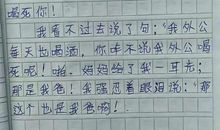 喝死你！
我看不过去说了句：“我外公
每天也喝酒，你咋不说我外公喝
死呢！啪，妈妈给了我一耳光：
那是我爸！我强忍着眼泪说：“那
这个也是我爸啊！